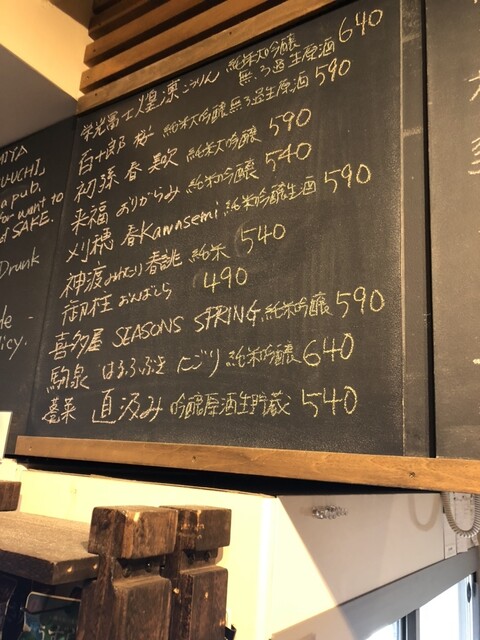 栄光冨士 煌凛 こうりん 純米大吟醸 無ろ過生原酒 640
百十郎 桜 純米大吟醸無ろ過生原酒 590
初孫 春興 純米大吟醸 590
来福 おりがらみ 純米吟醸 540
刈穂 春Kawasemi 純米吟醸生酒 590
神渡 みわたり 春誂 純米 540
御柱 おんばしら 490
喜多屋 SEASONS SPRING 純米吟醸 590
駒泉 はるふぶき にごり 純米吟醸 640
蓬莱 直汲み 吟醸原酒生貯蔵 540
MIYA
UUCHI,
a pub.
for want to
of SAKE.
Drunk
le -
licy.